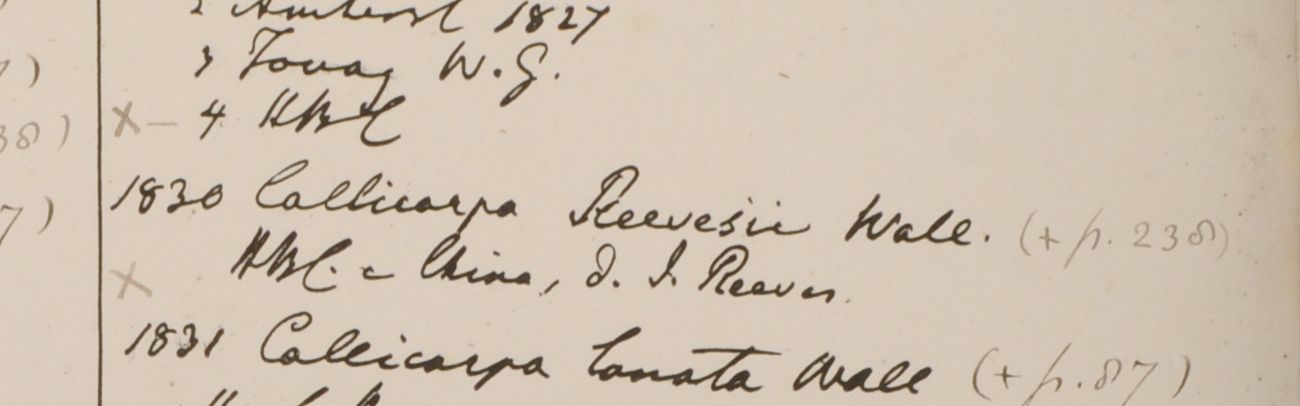 2 Amherst 1827
7)
3 Tovag W. G.
38)
X – 4 HBC
7)
1830 Callicarpa Reevesii Wall. (+ p. 238)
X HBC. e China, d. J. Reeves.
1831 Callicarpa lanata Wall (+ p. 87)